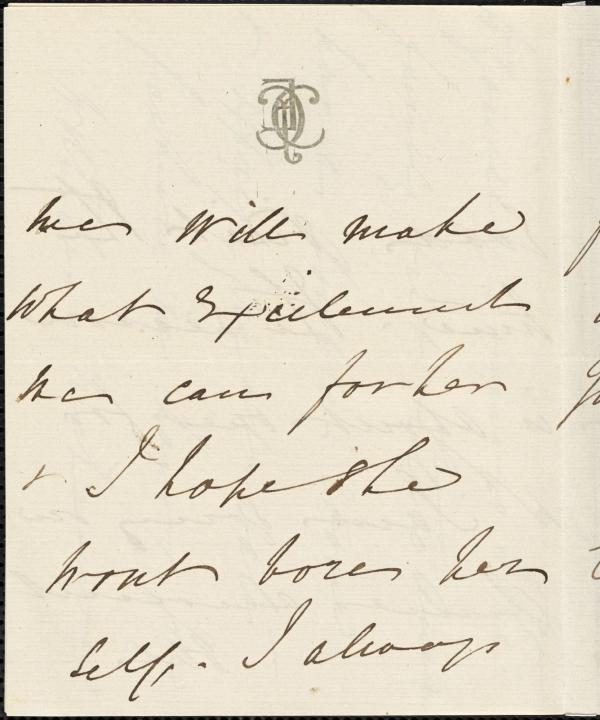 we will make
what Excitement
we can for her
& I hope she
wont bore her
self. I always